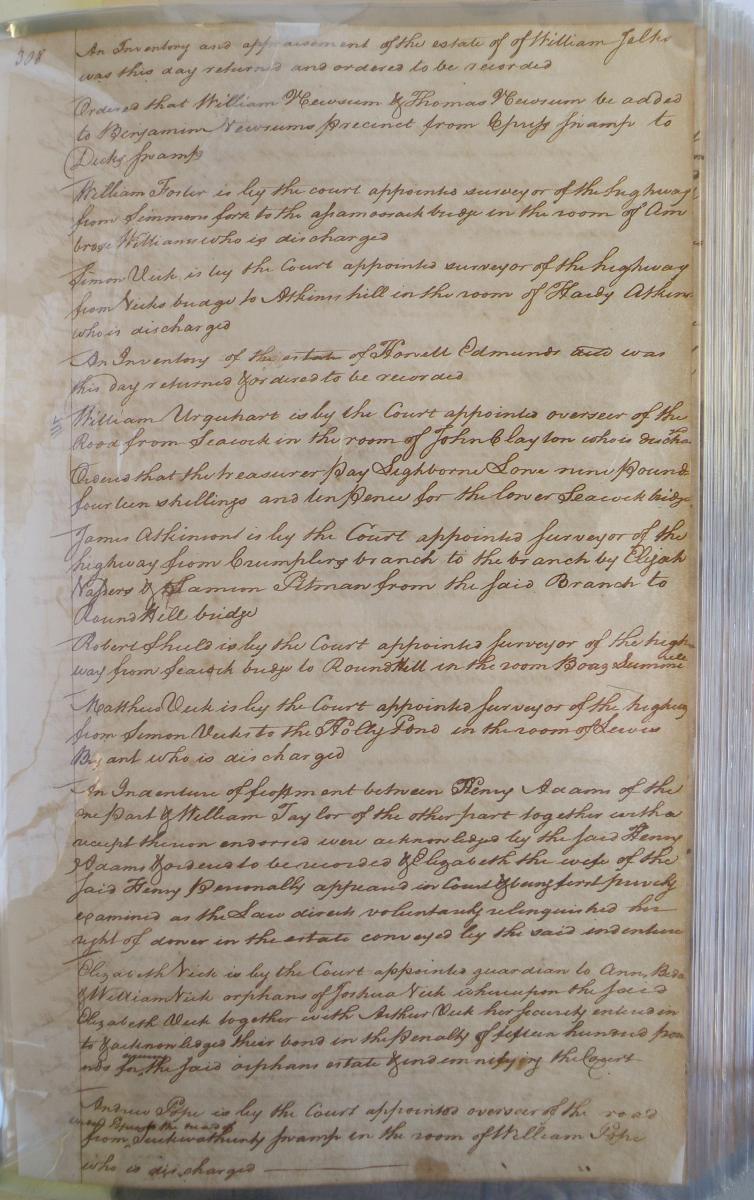 308
An Inventory and appraisement of the estate of of William
was this day returned and ordered to be recorded
Ordered that William Newsum & Thomas Newsum be added
to Benjamin Newsums Precinct from Cypress Swamp to
Swamp
William Foster is by the court appointed surveyor of the highway
from Simmons fork to the assamoosack bridge in the room of Am
brose Williams who is discharged
Simon Vick is by the Court appointed surveyor of the highway
from Vicks bridge to Atkins hill in the room of Hardy Atkins
who is discharged
An Inventory of the estate of Howell Edmunds was
this day returned & ordered to be recorded
William Urquhart is by the Court appointed overseer of the
Road from Seacock in the room of John Clayton who is discha
Ordered that the treasurer pay Lighborne Lone nine Pounds
fourteen shillings and ten Pence for the lower Seacock bridge
James Atkinson is by the Court appointed Surveyor of the
highway from Crumplers branch to the branch by Elijah
& Pitman from the said Branch to
Round Hill bridge
Robert Shield is by the Court appointed Surveyor of the high
way from Seacock bridge to Round Hill in the room Boaz
Matthew Vick is by the Court appointed Surveyor of the highway
from Simon Vicks to the Holly Pond in the room of Lewis
Bryant who is discharged
An Indenture of feoffment between Henry Adams of the
one Part & William Taylor of the other part together with a
receipt thereon endorsed were acknowledged by the said Henry
Adams & ordered to be recorded & Elizabeth the wife of the
said Henry Personally appeared in Court & being first privily
examined as the Law directs voluntarily relinquished her
right of dower in the estate conveyed by the said indenture
Elizabeth Vick is by the Court appointed guardian to Ann,
& William Vick orphans of Joshua Vick whereupon the said
Elizabeth Vick together with Arthur Vick her security entered in
to & acknowledged their bond in the Penalty of fifteen hundred pou
nds for the said orphans estate & indemnifying the Court
Andrew Pope is by the Court appointed overseer of the road
from Swamp in the room of William Pope
who is discharged